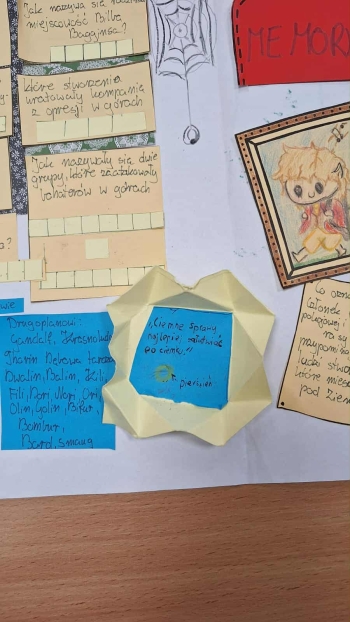 Jak nazywa się
miejscowość Bilba
Bagginsa?
które stworzenia
uratowały kompanię
z opresji w górach
Jak nazywały się dwie
grupy, które zaatakowały
w górach
MEMOR
Drugoplanowi:
Gandalf,
Thorin Dębowa Tarcza
Dwalin, Balin, Kili,
Fili, Dori, Nori, Ori,
Oin, Gloin, Bifur,
Bombur,
Bard, Smaug
"Ciemne sprawy,
najlepiej załatwiać
po ciemku."
pierścień
Co ozna
człones
ra są
przypomina
ludzi stwo
które miesz
pod ziem